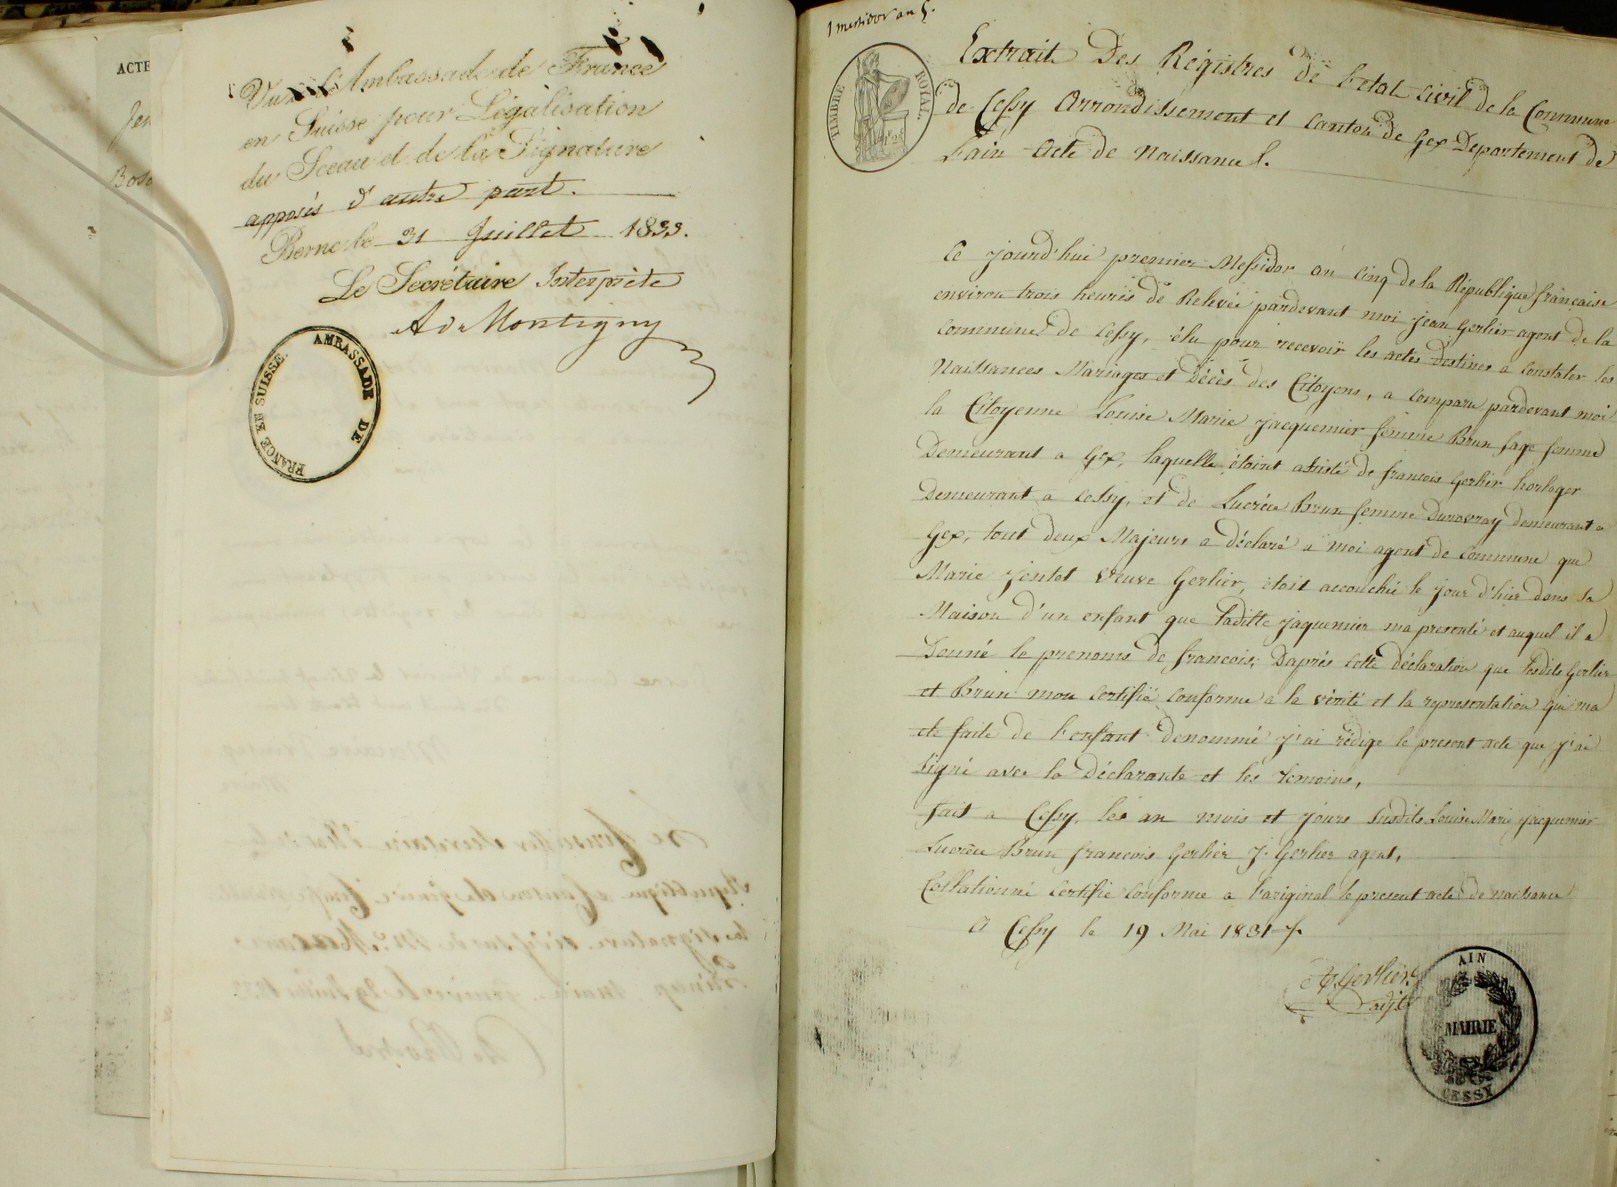 ACTE
Jen
Vu à l'Ambassade de France
en Suisse pour Légalisation
du Sceau et de la Signature
apposés d'autre part.
Berne le 31 Juillet 1833.
Le Secrétaire Interprète
Ad. Montigny
AMBASSADE DE
FRANCE EN SUISSE.
1 messidor an 5.
TIMBRE ROYAL
Extrait Des Régistres de l'etat civil de la Commune
de Cessy Arrondissement et canton de Gex Departement de
l'ain acte de Naissance.
Ce jourd'hui premier Messidor an cinq de la République francaise
environ trois heures de Relevée pardevant moi jean Gerlier agent de la
commune de Cessy, élu pour recevoir les actes destines a constater les
Naissances Mariages et Décès des Citoyens, a comparu pardevant moi
la Citoyenne Louise Marie jacquemier femme Brun sage femme
Demeurant a Gex, laquelle étoint assisté de francois Gerlier horloger
Demeurant a Cessy, et de Lucrèce Brun femme Durovray demeurant a
Gex, tout deux Majeurs a déclaré a moi agent de Commune que
Marie jentet veuve Gerlier, étoit accouchée le jour d'hier dans sa
Maison d'un enfant que laditte jaquemier ma presenté et auquel il a
Donné le prenoms de francois; Daprès cette déclaration que lesdits Gerlier
et Brun mon certifié conforme a la vérité et la representation qui ma
ete faite de l'enfant denommé j'ai rédigé le present acte que j'ai
signé avec la Déclarante et les temoins,
fait a Cessy, les an mois et jours susdits Louise Marie jacquemier
Lucrèce Brun francois Gerlier J. Gerlier agent,
Collationné certifié conforme a l'original le present acte de naissance
A Cessy le 19 Mai 1831
Gerlier
adjt
AIN
MAIRIE
CESSY